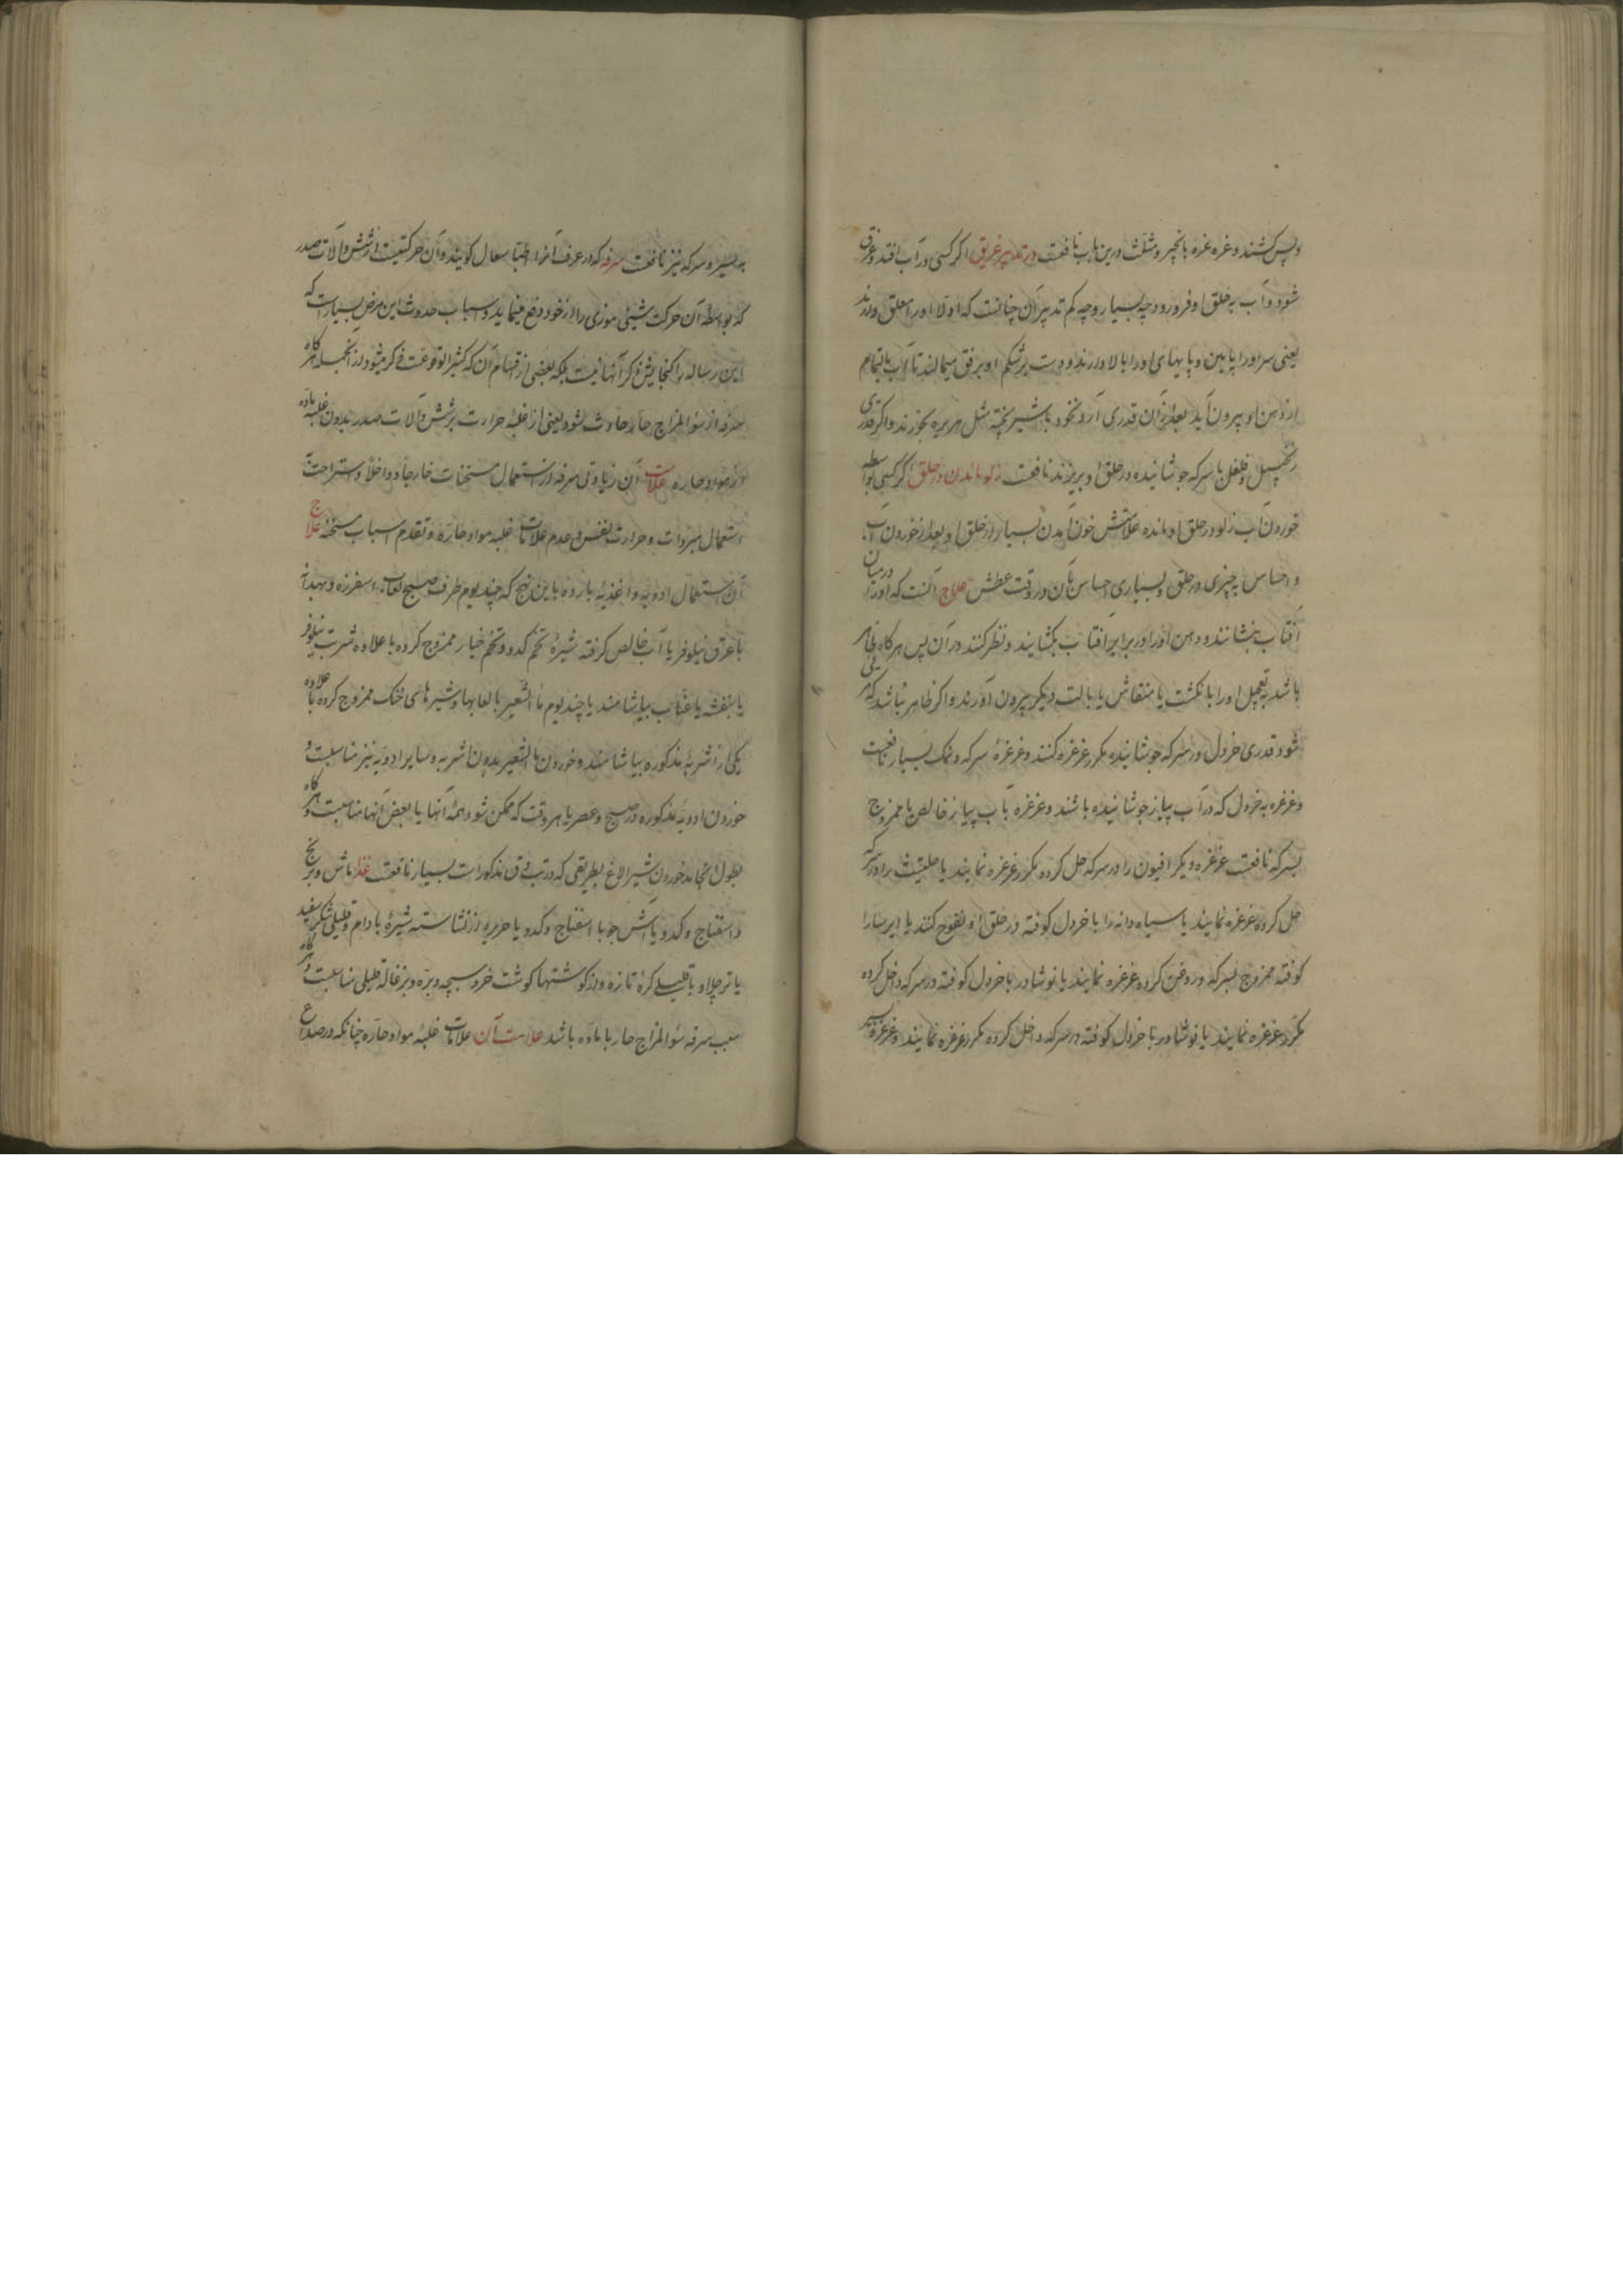 و پس کشند و غرغره بانجیر و مثلث درین باب نافعست در تدبیر غریق اگر کسی در آب افتد و غرق
شود و آب به حلق او فرو رود چه بسیار و چه کم تدبیر آن چنانست که اولا او را معلق دارند
یعنی سر او را پایین و پایهای او را بالا دارند و دست بر شکم او برفق میمالند تا آب بالتمام
از دهن او بیرون آید بعد از آن قدری آرد نخود با شیر پخته مثل هریره بخورند و اگر قدری
زنجبیل و فلفل با سرکه جوشانیده در حلق او بریزند نافعست زلو ماندن در حلق اگر کسی بواسطه
خوردن آب زلو در حلق او مانده علامتش خون آمدن بسیار از حلق او بعد از خوردن آب
و احساس به چیزی در حلق و بسیاری احساس بآن در وقت عطش علاج آنست که او را در میان
آفتاب بنشانند و دهن او را در برابر آفتاب بگشایند و نظر کنند در آن پس هرکاه ظاهر
باشد به تعجیل او را بانکشت یا منقاش یا بالت دیگر بیرون آورند و اگر ظاهر نباشد
شود قدری خردل در سرکه جوشانیده مکرر غرغره کنند و غرغرهٔ سرکه و نمک بسیار نافعست
و غرغره به خردل که در آب پیاز جوشانیده باشند و غرغره بآب پیاز خالص یا ممزوج
بسرکه نافعست غرغره دیگر افیون را در سرکه حل کرده مکرر غرغره نمایند یا حلتیث را در سرکه
حل کرده غرغره نمایند یا سیاه دانه را با خردل کوفته در حلق او نفوخ کنند یا ایرسا را
کوفته ممزوج بسرکه و روغن کرده غرغره نمایند یا نوشادر با خردل کوفته در سرکه داخل کرده
مکرر غرغره نمایند یا نوشادر با خردل کوفته در سرکه داخل کرده مکرر غرغره نمایند و غرغره
به سیر و سرکه نیز نافعست سرفه که در عرف آنرا اطبا سعال کویند و آن حرکتیست از شش و آلات صدر
که بواسطه آن حرکت شیئی موذی را از خود دفع مینماید و اسباب حدوث این مرض بسیار است که
این رساله را کنجایش ذکر آنها نیست بلکه بعضی از اقسام آن که کثیر الوقوعست ذکر میشود از آنجمله هرکاه
سرفه از سوء المزاج حار حادث شود یعنی از غلبهٔ حرارت بر شش و آلات صدر بدون غلبه ماده
از مواد حاره علامت آن زیادتی سرفه از استعمال مسخنات خارجا و داخلا و استراحت
استعمال مبردات و حرارت نفس و عدم علامات غلبه مواد حاره و تقدم اسباب مسخنه علاج
آن استعمال ادویه و اغذیهٔ بارده باین نهج که چند یوم طرف صبح لعاب اسفرزه و بهدانه
با عرق نیلوفر یا آب خالص کرفته شیرهٔ تخم کدو و تخم خیار ممزوج کرده با علاوه شربت نیلوفر
یا بنفشه یا عناب بیاشامند یا چند یوم ماء الشعیر با لعابها و شیرهای خنک ممزوج کرده با علاوه
یکی از اشربهٔ مذکوره بیاشامند و خوردن ماء الشعیر بدون اشربه و سایر ادویه نیز مناسبست و
خوردن ادویه مذکوره در صبح و عصر یا هر وقت که ممکن شود همهٔ آنها یا بعض آنها مناسبست و هرکاه
بطول انجامد خوردن شیر الاغ بطریقی که در تب دق مذکور است بسیار نافعست غذا ماش و برنج
و اسفناج و کدو یا آش جو با اسفناج و کدو یا حریره از نشاسته شیرهٔ بادام و قلیلی شکر سفید
یا تر چلاو با قلیلی کرهٔ تازه و از کوشتها کوشت خروسبچه و بره و بزغاله قلیلی مناسبست و هرکاه
سبب سرفه سوء المزاج حار با ماده باشد علامت آن علامات غلبهٔ مواد حاره چنانکه در صداع